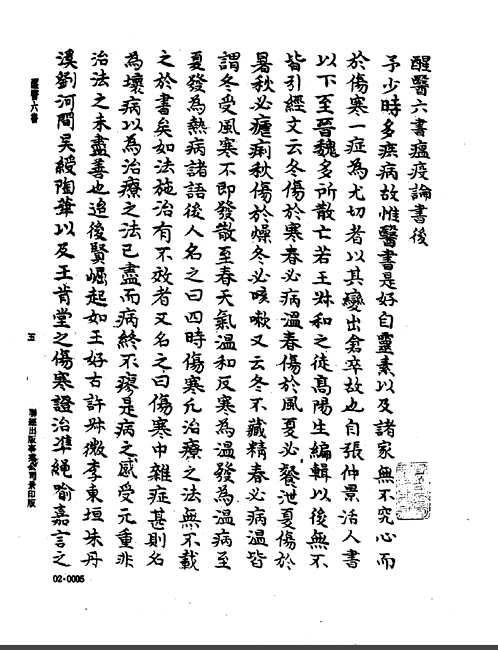 醒醫六書瘟疫論書後
予少時多疾病故惟醫書是好自靈素以及諸家無不究心而
於傷寒一症為尤切者以其變出倉卒故也自張仲景活人書
以下至晉魏多所散亡若王叔和之徒高陽生編輯以後無不
皆引經文云冬傷於寒春必病溫春傷於風夏必飱泄夏傷於
暑秋必瘧痢秋傷於燥冬必咳嗽又云冬不藏精春必病溫皆
謂冬受風寒不即發散至春天氣溫和反寒為溫發為溫病至
夏發為熱病諸語後人名之曰四時傷寒凡治療之法無不載
之於書矣如法施治有不效者又名之曰傷寒中雜症甚則名
為壞病以為治療之法已盡而病終不瘳是病之感受元重非
治法之未盡善也追後賢崛起如王好古許叔微李東垣朱丹
溪劉河間吳綬陶華以及王肯堂之傷寒證治準繩喻嘉言之
醒醫六書
五
聯經出版事業公司景印版
02-0005